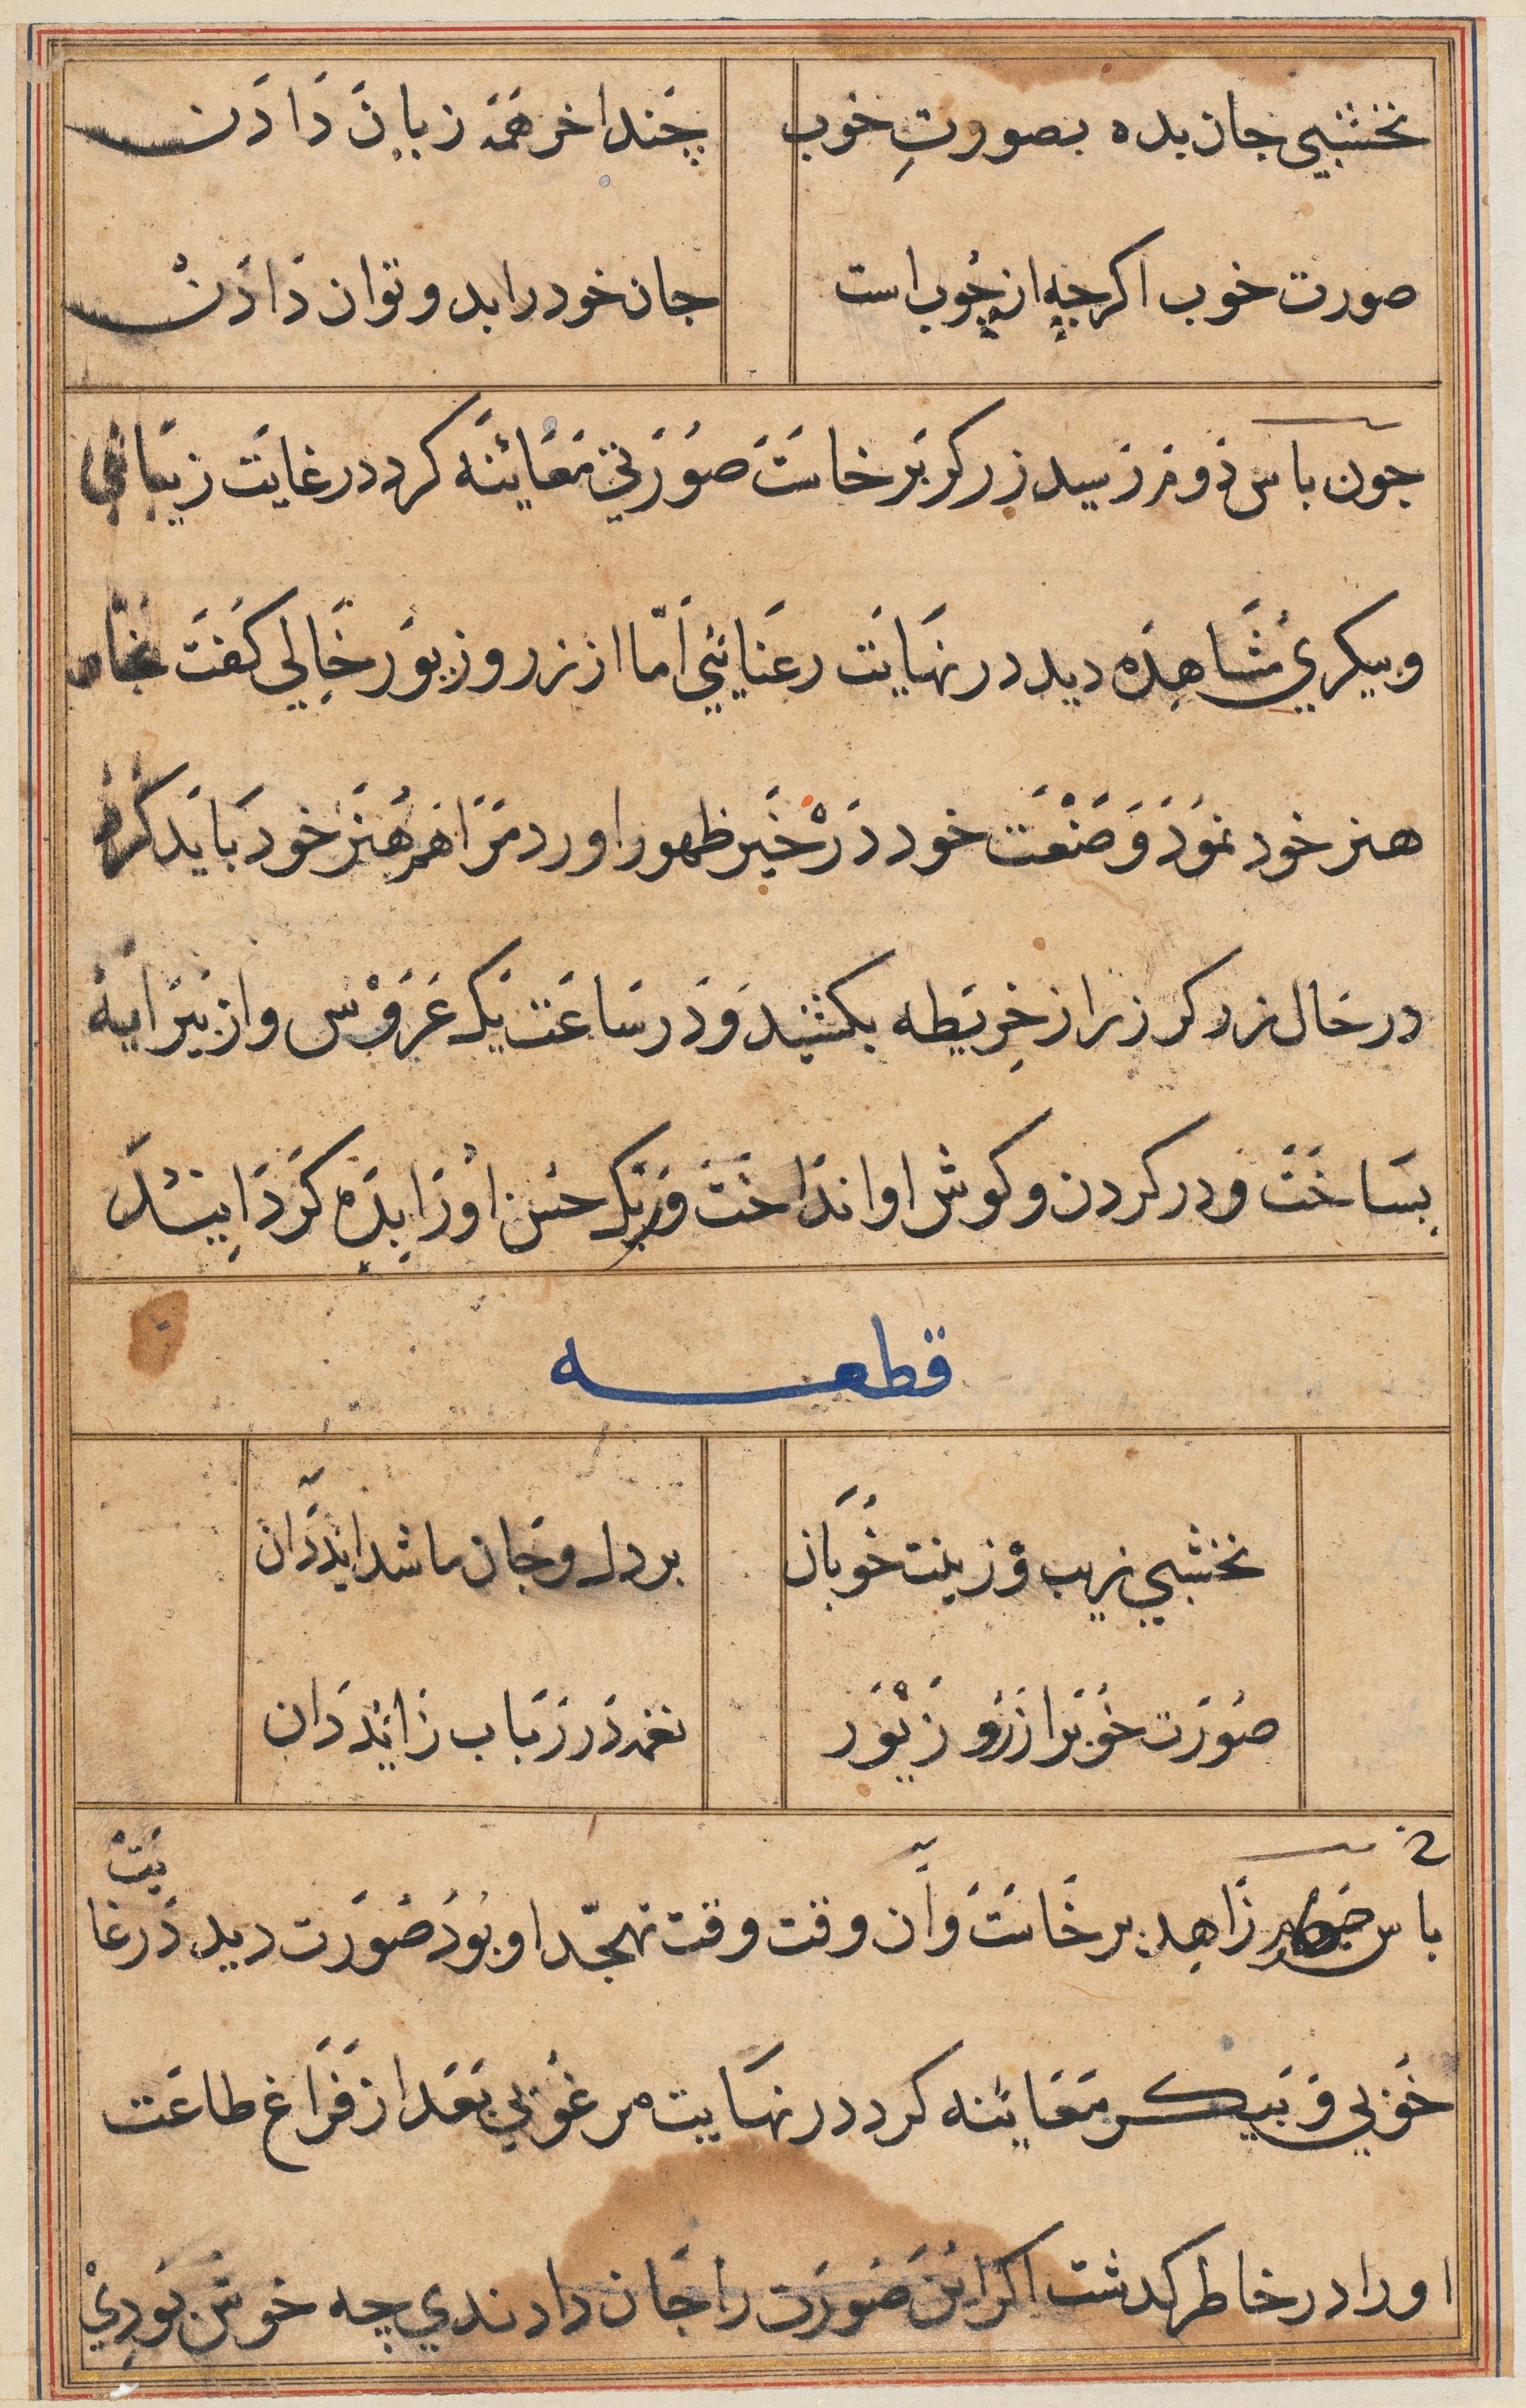 نخشبي جان بده بصورتِ خوب چَند اخر هَمَه زِيان دَادَن
صورت خوب اكرچه از چُوب است جان خود را بدو توان دَادَنْ
جون باس دَوم رَسيد زركر بَرخاستَ صُوَرَتي مَعَائنَه كرد در غايَت زيبَائي
و پيكري مُشَاهِدَه ديد در نهَايَت رعنَائيي اَمّا از زر و زيوَر خَالِي كَفتَ نجّار
هنر خود نموَدَ وَ صَنْعَت خود دَرْ خَير ظهور اورد مَرَا هم هُنَر خود بَايَد كَرد
در حَال زر كر زر از خِريَطه بكشيد وَ دَر سَاعَت يَك عَرَوْس واز پيَرَايَه
بسَاخَتَ و در كردن و كوش او اندَاخَتَ وَ يَك حسن اُو زَايِدَه كَرَد اَبيَد
قطعه
نخشبي زيب وَ زينت خُوبَان بر دل و جَان ما شدايَد دَان
صُوَرَت خُوبَرا زَر و زَيْوَر نغمه دَر رَبَاب زَائِد دَان
باس زَاهِد بر خَاستَ وَ آن وقت وقت تهجّد او بُوَدُ صُوَرَت ديد دَر غايَتْ
خُوَبي وَ پَيكر مَعَائنه كرد در نهَايت مرغُوبي بَعَد از فَرَاغ طاعَت
او را در خاطر كدشت اكر اين صُورَت را جَان دادندي چه خوش بُودِيْ